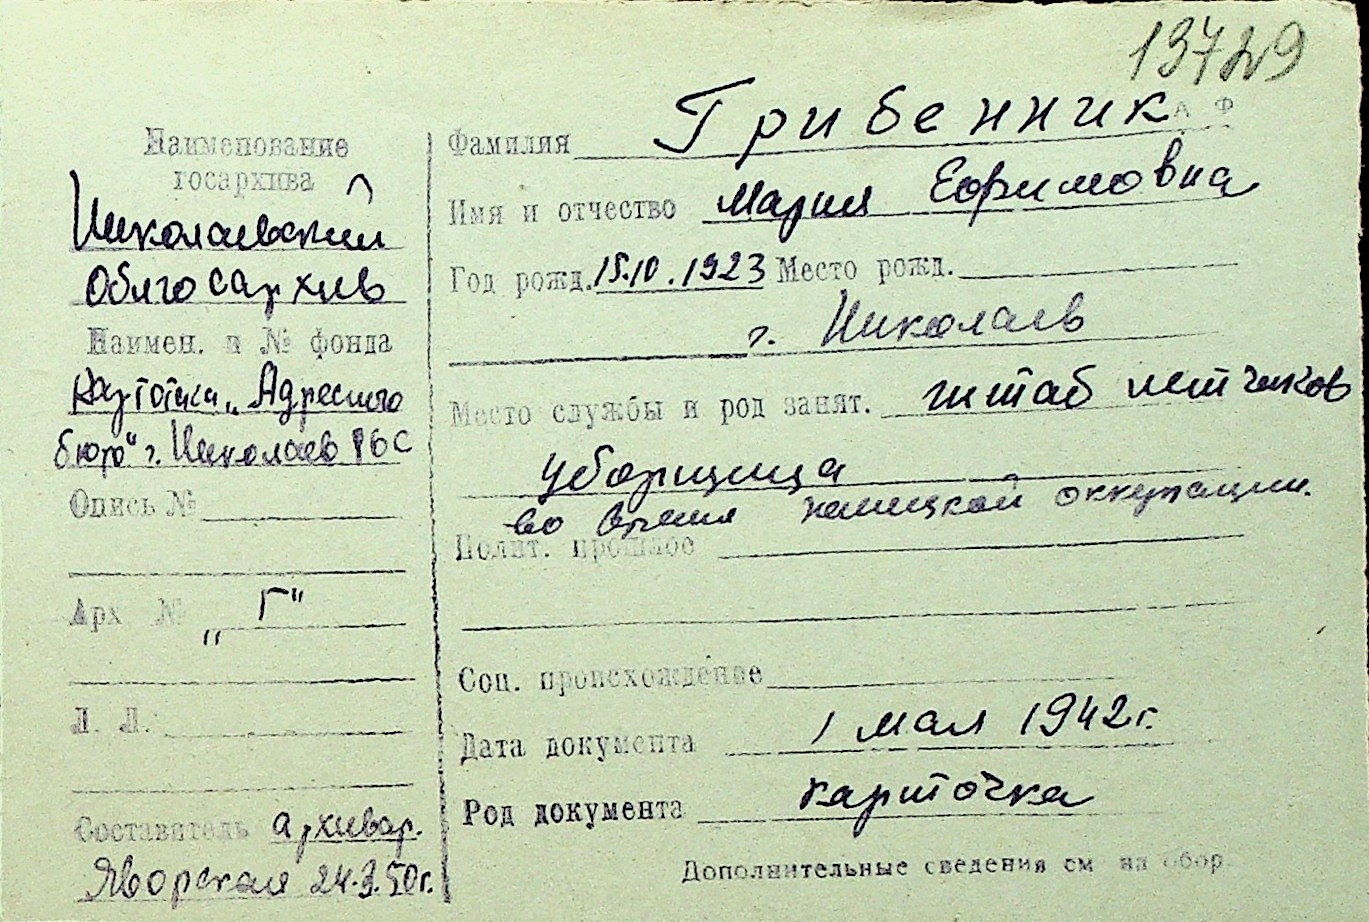 13729
А Ф
Наименование
госархива
Николаевский
Облгосархив
Наимен. и № фонда
Картотека „Адресного
бюро" г. Николаев
Опись №
Арх №
„Г"
Л. Л.
Составитель архивар.
Яворская 24.3.50г.
Фамилия Грибенник
Имя и отчество Мария Ефимовна
Год рожд. 15.10.1923 Место рожд.
г. Николаев
Место службы и род занят. штаб летчиков
уборщица
во время немецкой оккупации.
Полит. прошлое
Соц. происхождение
Дата документа 1 мая 1942г.
Род документа карточка
Дополнительные сведения см на обор